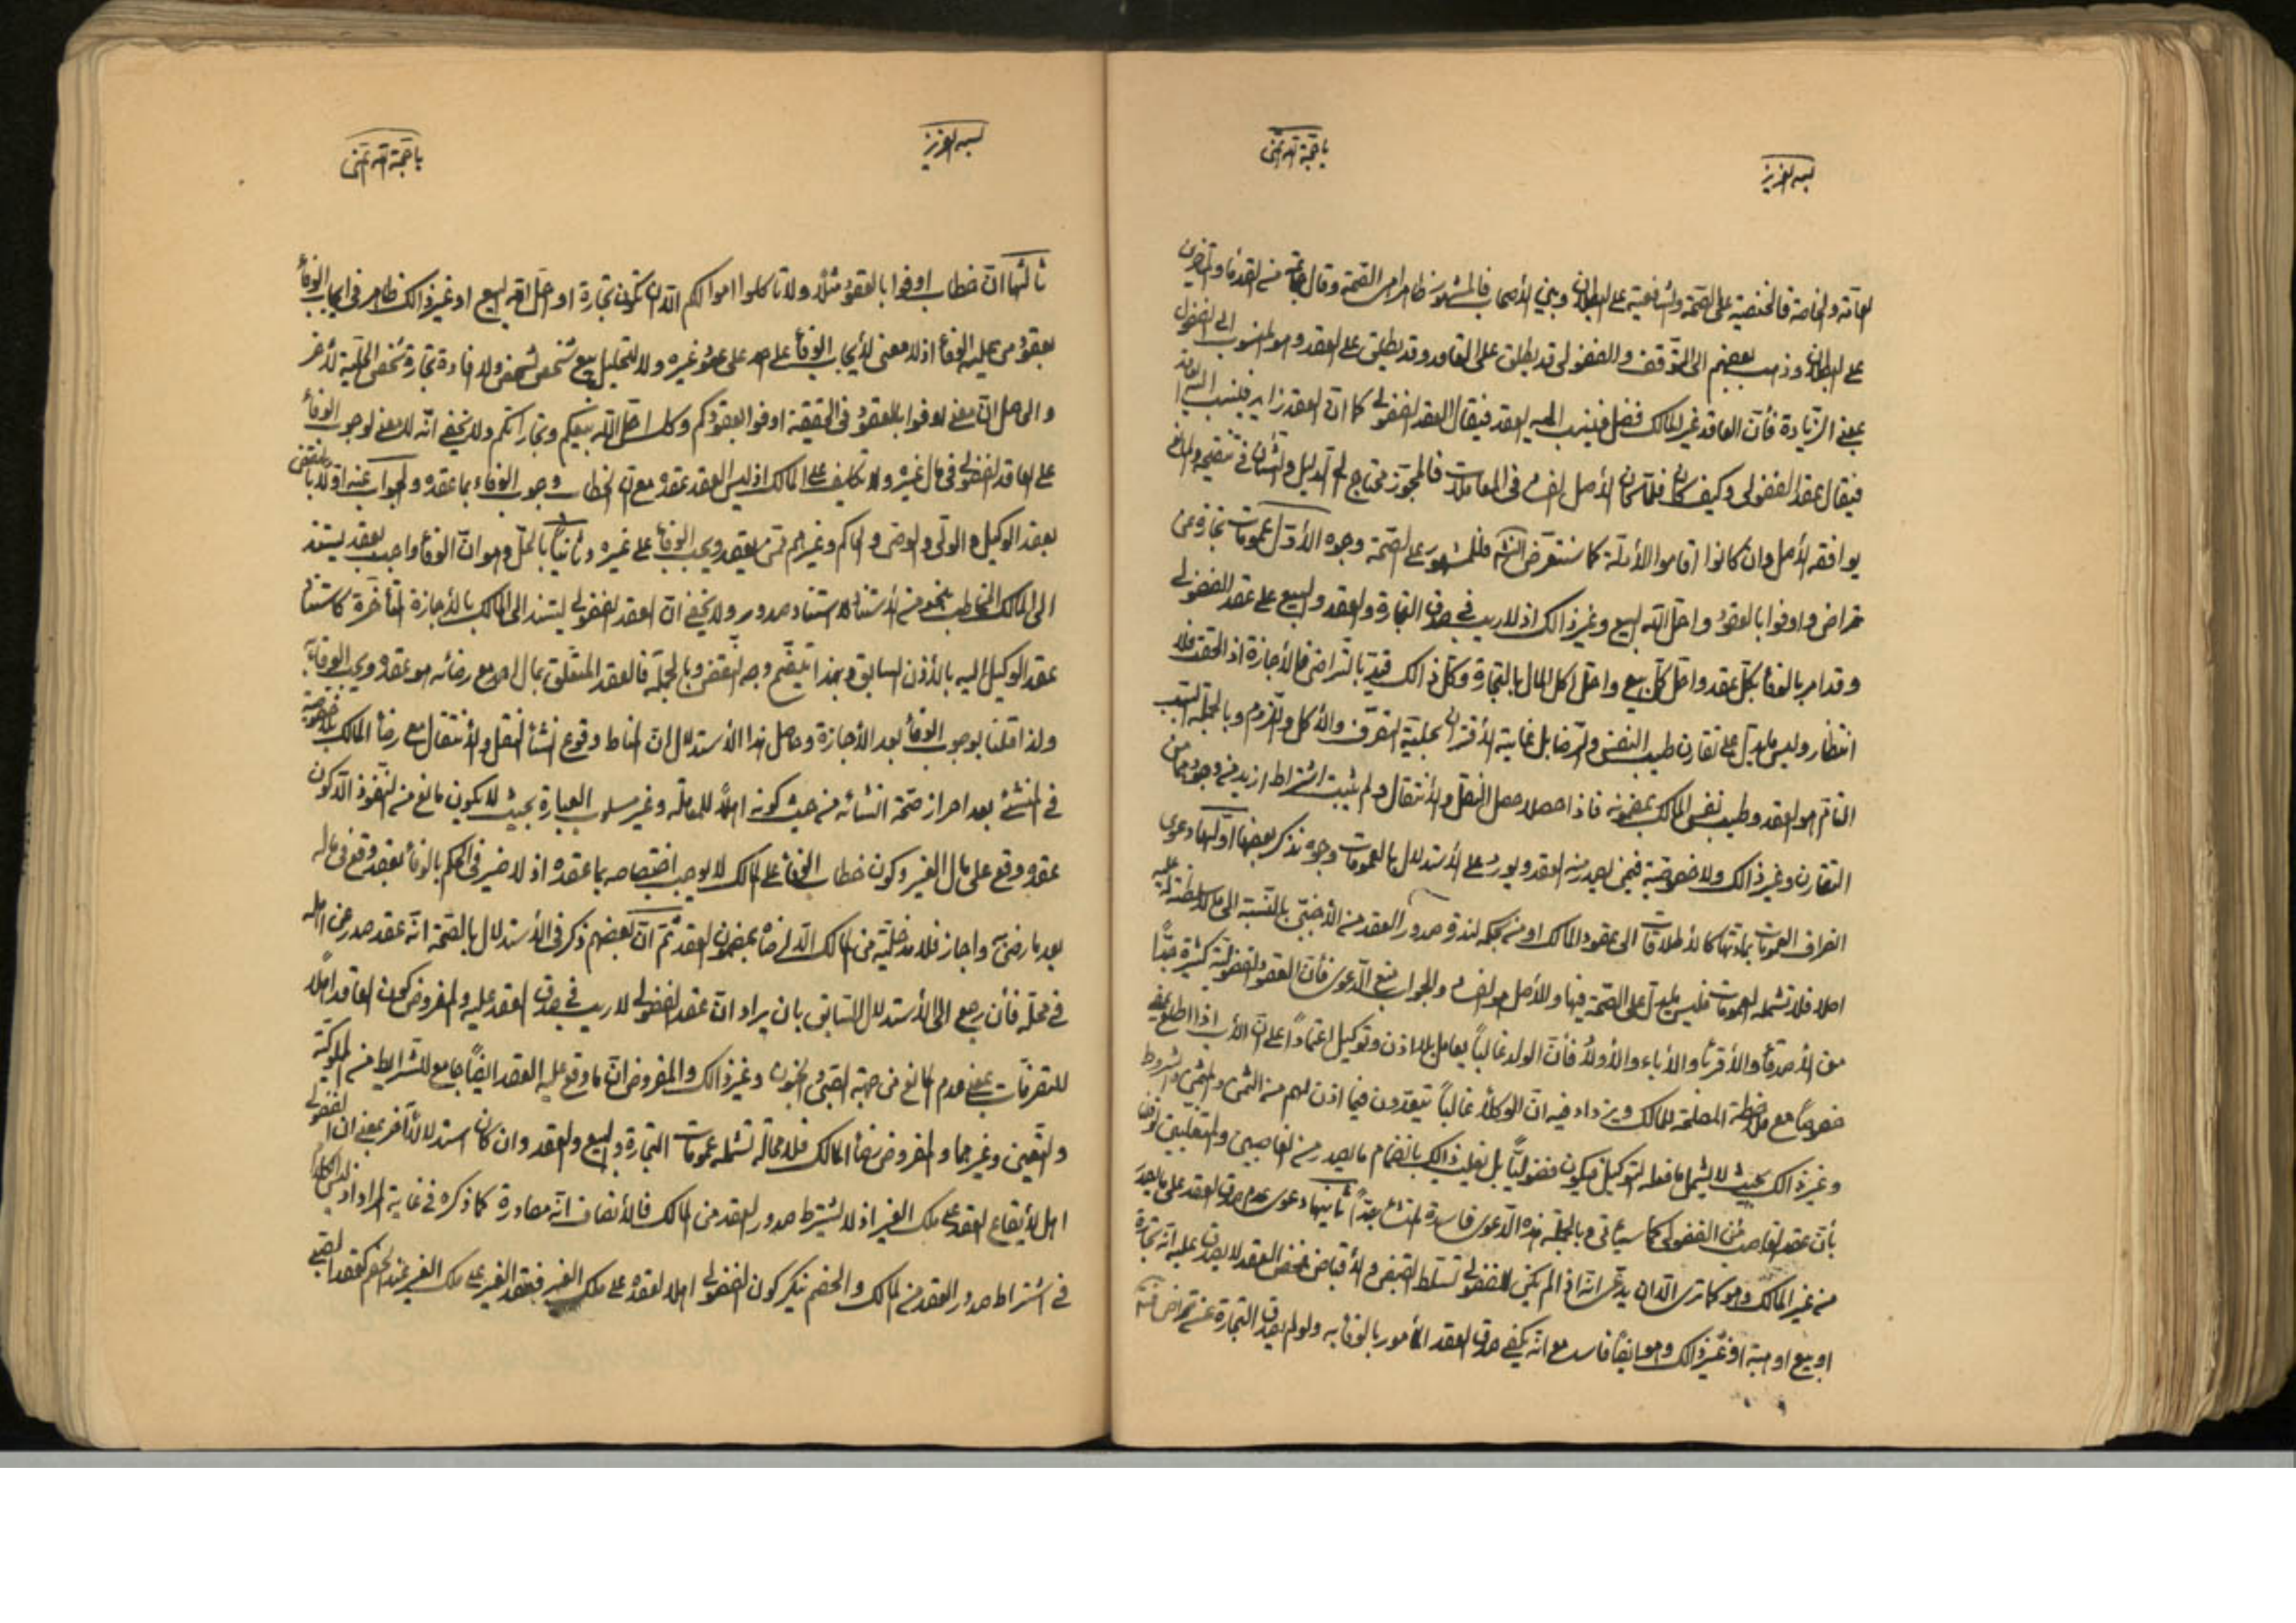 بسمه العزيز
يا حجة الله
العامة والخاصة فالحنفية على الصحة والشافعية على البطلان وبين الأصحاب فالمشهور ظاهرا هى الصحة وقال جماعة من القدماء والمتأخرين
على البطلان وذهب بعضهم الى التوقف والفضولى قد يطلق على العاقد وقد يطلق على العقد وهو المنسوب الى الفضول
بمعنى الزيادة فأن العاقد غير المالك فضل فينسب اليه العقد فيقال العقد الفضولى كما ان العقد زايد فينسب اليه العاقد
فيقال عقد الفضولى وكيف كان فلما كان الأصل الفساد فى المعاملات فالمجوز محتاج الى الدليل والشأن فى تنقيحه والمانع
يوافقه الأصل وان كانوا اقاموا الأدلة كما سنتعرض انشاء الله فللمشهور على الصحة وجوه الأول عمومات تجارة عن
تراض واوفوا بالعقود واحل الله البيع وغير ذالك اذ لا ريب فى صدق التجارة والعقد والبيع على عقد الفضولى
وقد امر بالوفاء بكل عقد واحل كل بيع واحل اكل المال بالتجارة وكل ذالك قيد بالتراضى فالأجازة اذا لحقت فلا
انتظار وليس ما يدل على تقارن طيب النفس والرضا بل غايته الأقتران بحلية التصرف والأكل واللزوم وبالجملة السبب
التام هو العقد وطيب نفس المالك بمضمونه فاذا حصلا حصل النقل والأنتقال ولم يثبت اشتراط ازيد منه وجودهما من
التقارن وغير ذالك ولا خصوصية فيمن يصدر منه العقد ويورد على الأستدلال بالعمومات وجوه نذكر بعضها اولها دعوى
انصراف العمومات بمادتها كالأطلاقات الى عقود المالك او من بحكمه لندرة صدور العقد من الأجنبى بالنسبة الى ما لا سلطنة له عليه
اصلا فلا تشمله العمومات فليس ما يدل على الصحة فيها والأصل هو الفساد والجواب منع الدعوى فأن العقود الفضولية كثيرة جدا
من الأصدقاء والأقرباء والأباء والأولاد فأن الولد غالبا يعامل بلا اذن وتوكيل اعتمادا على ان الأب اذا اطلع يمضى
خصوصا مع ملاحظة المصلحة للمالك ويزداد فيه ان الوكلاء غالبا يتعدون فيما اذن لهم من الثمن والمثمن والشروط
وغير ذالك بحيث لا يشمل ما فعله التوكيل فيكون فضوليا بل يغلب ذالك بانضمام ما يصدر من الغاصبين والمتغلبين
بأن عقد الغاصب من الفضولى كما سيأتى وبالجملة هذه الدعوى فاسدة المنشأ جدا ثانيها دعوى عدم صدق العقد على ما يصدر
من غير المالك وهو كما ترى الا ان يدعى انه اذا لم يكن للفضولى تسلط القبض والأقباض فمحض العقد لا يصدق عليه انه تجارة
او بيع او هبة او غير ذالك وهو ايضا فاسد مع انه يكفى صدق العقد المأمور بالوفاء به ولو لم يصدق التجارة عن تراض
بسمه العزيز
يا حجة الله
ثالثها ان خطاب اوفوا بالعقود مثلا ولا تأكلوا اموالكم الا ان تكون تجارة او احل الله البيع او غير ذالك ظاهر فى ايجاب الوفاء
بعقود من عليه الوفاء اذ لا معنى لأيجاب الوفاء على احد على عقود غيره ولا لتحليل بيع شخص لشخص ولا فادة تجارة شخص الحلية لأخر
والحاصل ان معنى اوفوا بالعقود فى الحقيقة اوفوا بعقودكم وكذا احل الله بيعكم وتجاراتكم ولا يخفى انه لا معنى لوجوب الوفاء
على العاقد الفضولى فى مال غيره ولا تكليف على المالك اذ ليس العقد عقده مع ان الخطاب وجوب الوفاء بما عقده والجواب عنه اولا بالنقض
بعقد الوكيل والولى والوصى والحاكم وغيرهم ممن يعقد ويجب الوفاء على غيره وثانيا بالحل وهو ان الوفاء واجب بعقد يستند
الى المالك المخاطب بنحو من الأستناد لا استناد صدور ولا يخفى ان العقد الفضولى يستند الى المالك بالأجازة المتأخرة كاستناد
عقد الوكيل اليه بالأذن السابق وبهذا يتضح وجه النقض وبالجملة فالعقد المتعلق بمال احد مع رضائه هو عقده ويجب الوفاء
ولذا قلنا بوجوب الوفاء بعد الأجازة وحاصل هذا الأستدلال ان المناط وقوع انشاء النقل والأنتقال مع رضاء المالك بلا خصوصية
فى المنشئ بعد احراز صحة انشائه من حيث كونه اهلا للمعاملة وغير مسلوب العبارة بحيث لا يكون مانع من النفوذ الا كون
عقده وقع على مال الغير وكون خطاب الوفاء على المالك لا يوجب اختصاصه بما عقده اذ لا ضير فى الحكم بالوفاء بعقد وقع فى ماله
بعد ما رضى به واجاز فلا مدخلية من المالك الا لرضاه بمضمون العقد ثم ان بعضهم ذكر فى الأستدلال بالصحة انه عقد صدر من اهله
فى محله فأن رجع الى الأستدلال السابق بان يراد ان عقد الفضولى لا ريب فى صدق العقد عليه والمفروض كون العاقد اهلا
للتصرفات بمعنى عدم المانع من جهة الصبى والجنون وغير ذالك والمفروض ان ما وقع عليه العقد ايضا جامع للشرايط من المملوكية
والتعين وغيرهما والمفروض رضاء المالك فلا محالة تشمله عمومات التجارة والبيع والعقد وان كان استدلالا آخر بمعنى ان الفضولى
اهل لأيقاع العقد على ملك الغير اذ لا يشترط صدور العقد من المالك فالأنصاف انه مصادرة كما ذكره فى غاية المراد اذ ليس الكلام الا
فى اشتراط صدور العقد من المالك والخصم ينكر كون الفضولى اهلا لعقده على ملك الغير فعقد الغير على ملك الغير عند الخصم كعقد الصبى